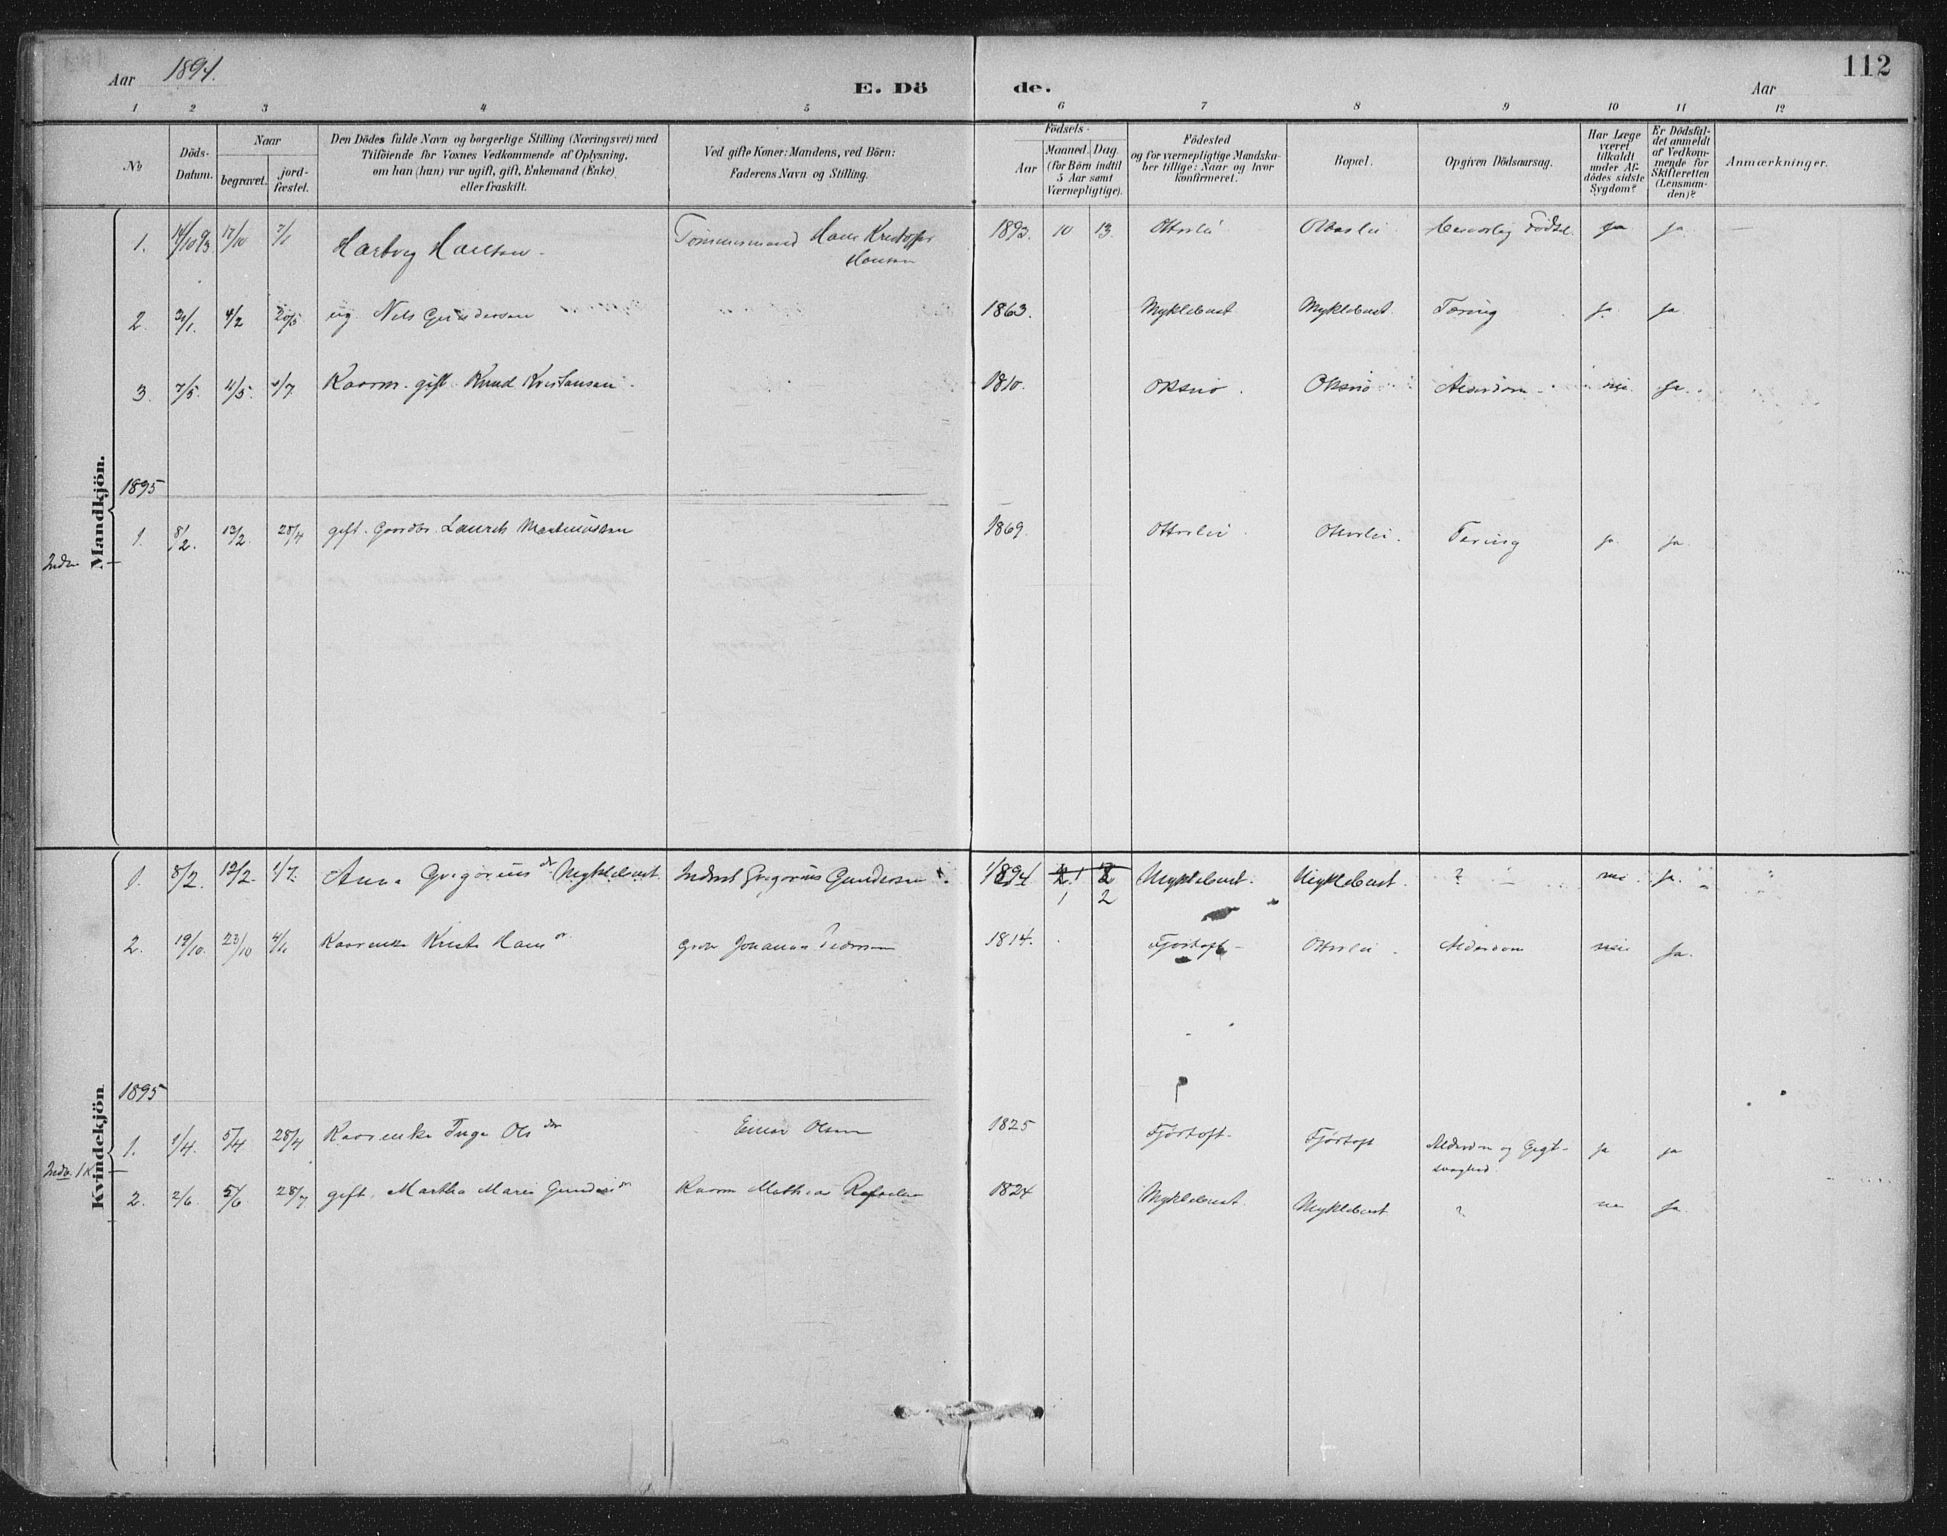 Aar 1894.
E. Döde.
Aar
112
1 2 3 4 5 6 7 8 9 10 11 12
No
Döds-Datum.
Naar
begravet.
jord-fæstet.
Den Dödes fulde Navn og borgerlige Stilling (Næringsvei) med
Tilföiende for Voxnes Vedkommende af Oplysning,
om han (hun) var ugift, gift, Enkemand (Enke)
eller fraskilt.
Ved gifte Koner: Mandens, ved Börn:
Faderens Navn og Stilling.
Födsels-
Aar
Maaned.
Dag
(for Börn indtil
5 Aar samt
Værnepligtige).
Födested
og for værnepligtige Mandska-
ber tillige: Naar og hvor
konfirmeret.
Bopæl.
Opgiven Dödsaarsag.
Har Læge
været
tilkaldt
under Af-
dödes sidste
Sygdom?
Er Dödsfal-
det anmeldt
af Vedkom-
mende for
Skifteretten
(Lensman-
den)?
Anmærkninger.
Mandkjön.
1. 14/10 93 17/10 7/1 Hartvig Hansen Tømmermand Hans Kristoffer Hansen 1893. 10 13. Otterlei Otterlei Födsel. ja ja.
2. 31/1. 4/2 20/5 ug. Nils Gundersen 1863. Myklebust Myklebust. Tæring ja ja.
3. 7/5. 11/5. 1/7. Kaarm. gift. Knud Kristiansen. 1810. Oksnø. Oksnø Alderdom nei ja.
1895
1. 8/2. 13/2. 28/4 gift. Gaardbr. Laurits Martinussen 1869. Otterlei Otterlei. Tæring ja. ja.
Indre
Kvindekjön
1. 8/2. 12/2. 1/7. Anna Gregoriusdr Myklebust. Inderst Gregorius Gundersen. 1894 1 2 Myklebust. Myklebust. ? nei. ja.
2. 19/10. 23/10 4/11 Kaarenke Hansdr Johannes Pedersen 1814. Fjörtoft Otterlei. Alderdom nei ja.
1895
1. 1/4. 5/4 28/4 Kaarenke Inga Olsdtr Einar Olsen 1825 Fjörtoft. Fjörtoft Alderdom og Gigt-
svaghed. ja ja
Indre 1 K
2. 2/6. 5/6 28/7 gift. Martha Marie Gundersdr Kaarm Mathias Rafaelsen 1824 Myklebust. Myklebust. ? nei ja.